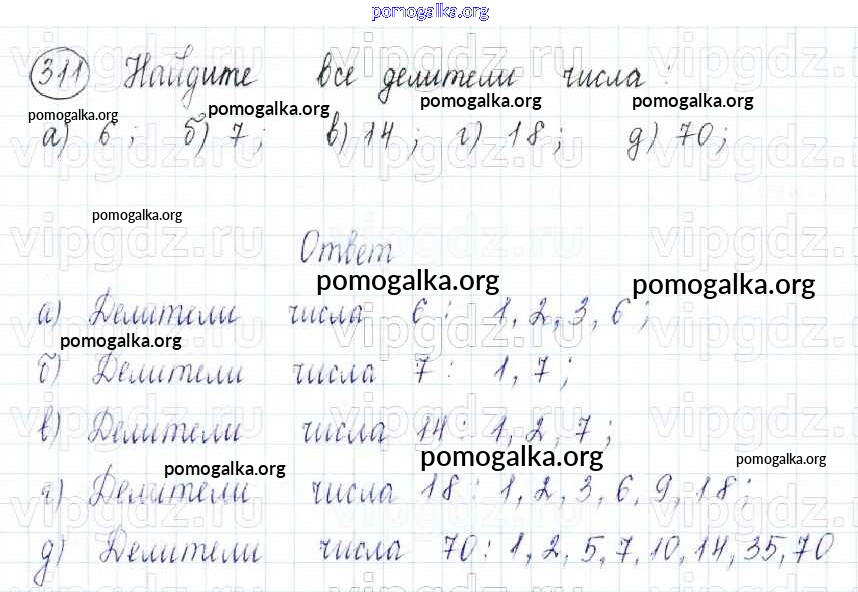 pomogalka.org
311 Найдите все делители числа:
pomogalka.org pomogalka.org pomogalka.org pomogalka.org
а) 6; б) 7; в) 14; г) 18; д) 70;
vipgdz.ru vipgdz.ru vipgdz.ru
pomogalka.org
vipgdz.ru vipgdz.ru vipgdz.ru
Ответ
pomogalka.org pomogalka.org
а) Делители числа 6: 1, 2, 3, 6;
pomogalka.org
б) Делители числа 7: 1, 7;
в) Делители числа 14: 1, 2, 7;
pomogalka.org pomogalka.org pomogalka.org
г) Делители числа 18: 1, 2, 3, 6, 9, 18;
д) Делители числа 70: 1, 2, 5, 7, 10, 14, 35, 70